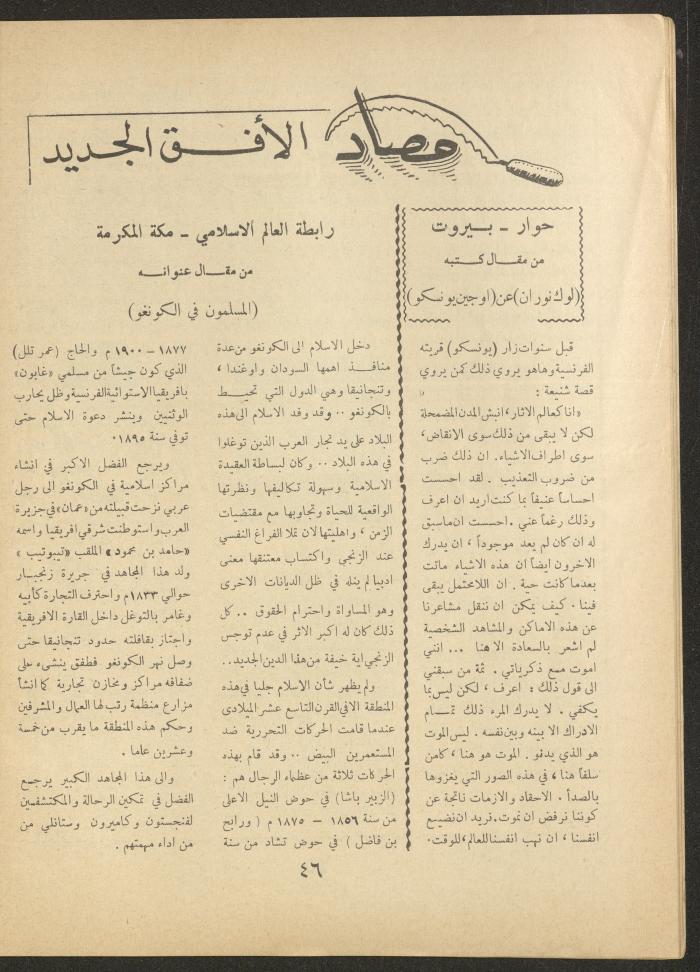 حصاد
الأفق الجديد
حوار - بيروت
من مقال كتبه
(لوك نوران) عن (اوجين يونسكو)
قبل سنوات زار (يونسكو) قريته
الفرنسية وهاهو يروي ذلك كمن يروي
قصة شنيعة :
«انا كعالم الاثار، انبش المدن المضمحلة
لكن لا يبقى من ذلك سوى الانقاض،
سوى اطراف الاشياء. ان ذلك ضرب
من ضروب التعذيب . لقد احسست
احساساً عنيفاً بما كنت اريد ان اعرف
وذلك رغماً عني . احسست ان ماسبق
له ان كان لم يعد موجوداً ، ان يدرك
الاخرون ايضاً ان هذه الاشياء ماتت
بعدما كانت حية . ان اللامحتمل يبقى
فينا . كيف يمكن ان ننقل مشاعرنا
عن هذه الاماكن والمشاهد الشخصية
لم اشعر بالسعادة الا هنا ... انني
اموت مع ذكرياتي . ثمة من سبقني
الى قول ذلك : اعرف ، لكن ليس بما
يكفي . لا يدرك المرء ذلك تمام
الادراك الا بينه وبين نفسه . ليس الموت
هو الذي يدنو . الموت هو هنا ، كامن
سلفاً هنا ، في هذه الصور التي يغزوها
بالصدأ . الاحقاد والازمات ناتجة عن
كوننا نرفض ان نموت. نريد ان نضيع
انفسنا ، ان نهب انفسنا للعالم، للوقت·
رابطة العالم الاسلامي - مكة المكرمة
من مقال عنوانه
(المسلمون في الكونغو)
دخل الاسلام الى الكونغو من عدة
منافذ اهمها السودان واوغندا ،
وتنجانيقا وهي الدول التي تحيط
بالكونغو .. وقد وفد الاسلام الى هذه
البلاد على يد تجار العرب الذين توغلوا
في هذه البلاد .. وكان لبساطة العقيدة
الاسلامية وسهولة تكاليفها ونظرتها
الواقعية للحياة وتجاوبها مع مقتضيات
الزمن ، واهليتها لان تملا الفراغ النفسي
عند الزنجي واكتساب معتنقها معنى
ادبيا لم ينله في ظل الديانات الاخرى
وهو المساواة واحترام الحقوق .. كل
ذلك كان له اكبر الاثر في عدم توجس
الزنجي اية خيفة من هذا الدين الجديد..
ولم يظهر شأن الاسلام جليا في هذه
المنطقة الا في القرن التاسع عشر الميلادى
عندما قامت الحركات التحررية ضد
المستعمرين البيض .. وقد قام بهذه
الحركات ثلاثة من عظماء الرجال هم :
(الزبير باشا) في حوض النيل الاعلى
من سنة ١٨٥٦ - ١٨٧٥ م ( ورابح
بن فاضل ) في حوض تشاد من سنة
١٨٧٧ - ١٩٠٠ م والحاج (عمر تلل)
الذي كون جيشاً من مسلمي «غابون»
بافريقيا الاستوائية الفرنسية وظل يحارب
الوثنيين وينشر دعوة الاسلام حتى
توفي سنة ١٨٩٥·
ويرجع الفضل الاكبر في انشاء
مراكز اسلامية في الكونغو الى رجل
عربي نزحت قبيلته من «عمان» في جزيرة
العرب واستوطنت شرقي افريقيا واسمه
«حامد بن محمود » الملقب «تيبوتيب »
ولد هذا المجاهد في جزيرة زنجبار
حوالي ١٨٣٣م واحترف التجارة كأبيه
وغامر بالتوغل داخل القارة الافريقية
واجتاز بقافلته حدود تنجانيقا حتى
وصل نهر الكونغو فطفق ينشىء على
ضفافه مراكز ومخازن تجارية كما انشأ
مزارع منظمة رتب لها العمال والمشرفين
وحكم هذه المنطقة ما يقرب من خمسة
وعشرين عاما .
والى هذا المجاهد الكبير يرجع
الفضل في تمكين الرحالة والمكتشفين
لفنجستون وكاميرون وستانلي من
من اداء مهمتهم .
٤٦